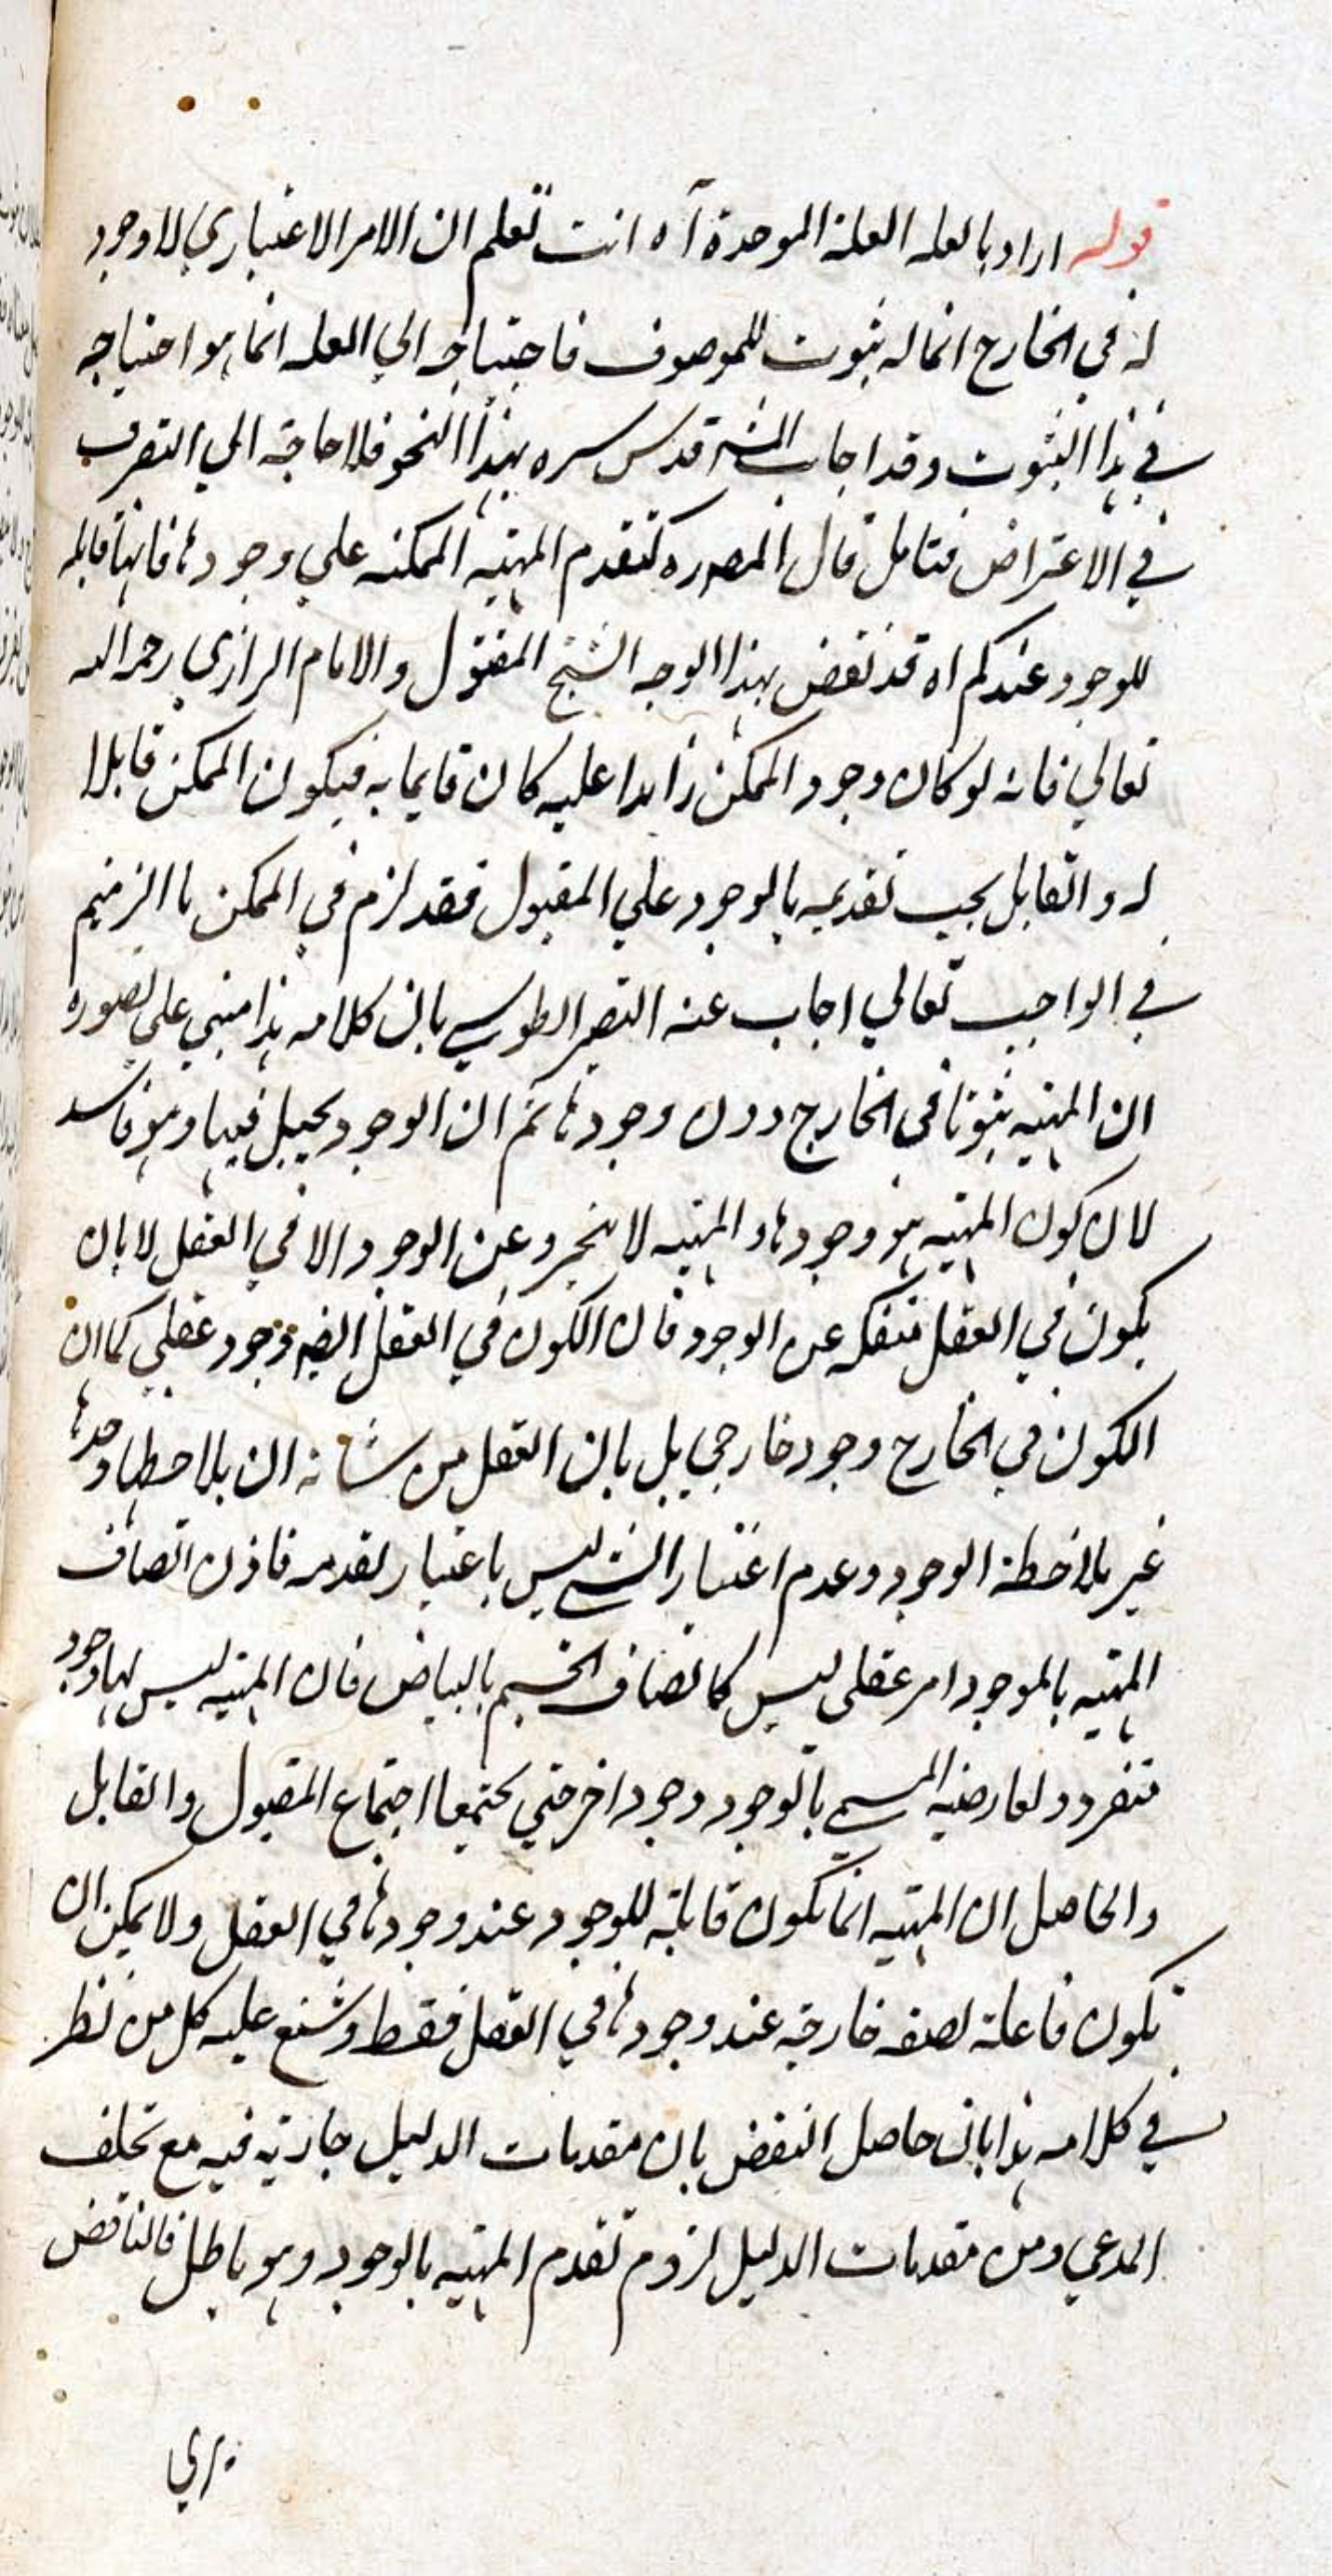 قوله اراد بالعله العلة الموحدة آه انت تعلم ان الامر الاعتباري لا وجود
له في الخارج انما له ثبوت للموصوف فاحتياجه الي العله انما هو احتياجه
في هذا الثبوت وقد اجاب المشہ قدس سره بهذا النحو فلا حاجة الي التصرف
في الاعتراض فتامل قال المصہ ره كتقدم المهيه الممكنه علي وجودها فانها قابله
للوجود عندكم اه قد نقض بهذا الوجه الشيخ المقتول والامام الرازي رحمه الله
تعالي فانه لو كان وجود الممكن زايدا عليه كان قايما به فيكون الممكن قابلا
له والقابل يجب تقديمه بالوجود علي المقبول فقد لزم في الممكن ما الزمتم
في الواجب تعالي اجاب عنه النصير الطوسي بان كلامه هذا مبني علي تصوره
ان المهيه ثبوتا في الخارج دون وجودها ثم ان الوجود يحيل فيها وهو فاسد
لان كون المهيه هو وجودها والمهيه لا تنجرد عن الوجود الا في العقل لا بان
يكون في العقل منفكه عن الوجود فان الكون في العقل ايضہ وجود عقلي كما ان
الكون في الخارج وجود خارجي بل بان العقل من شانه ان يلاحظها وحدها
غير ملاحظة الوجود وعدم اعتبار الشي ليس باعتبار لعدمه فاذن اتصاف
المهيه بالموجود امر عقلي ليس كاتصاف الجسم بالبياض فان المهيه ليس لها وجود
منفرد ولعارضيه المسمي بالوجود وجود اخر حتي يجتمعا اجتماع المقبول والقابل
والحاصل ان المهيه انما تكون قابلة للوجود عند وجودها في العقل ولا يمكن ان
تكون فاعلة لصفه خارجه عند وجودها في العقل فقط وشنع عليه كل من نظر
في كلامه هذا بان حاصل النقض بان مقدمات الدليل جارية فيه مع تخلف
المدعي ومن مقدمات الدليل لزوم تقدم المهيه بالوجود وهو باطل فالناقض
يري